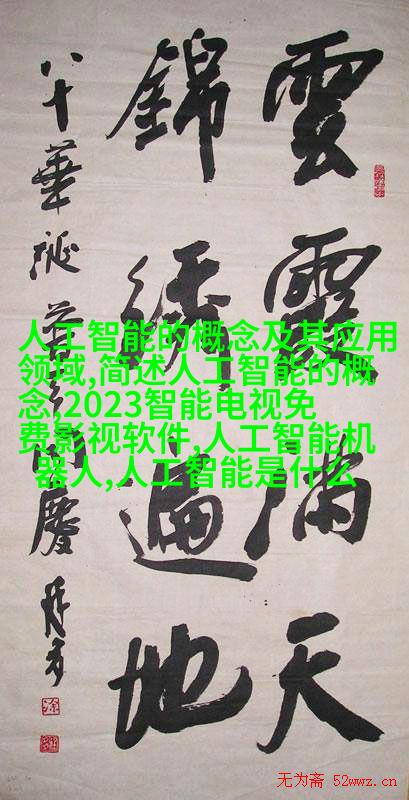 雲霞满天
錦綉遍地
八十華诞
人工智能的概念及其应用
领域,简述人工智能的概
念,2023智能电视免
费影视软件,人工智能机
器人,人工智能是什么
无为斋 52wwz.cn